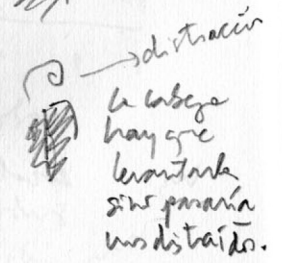 distracción
la cabeza
hay que
levantarla
sino pasaría
mos distraídos.